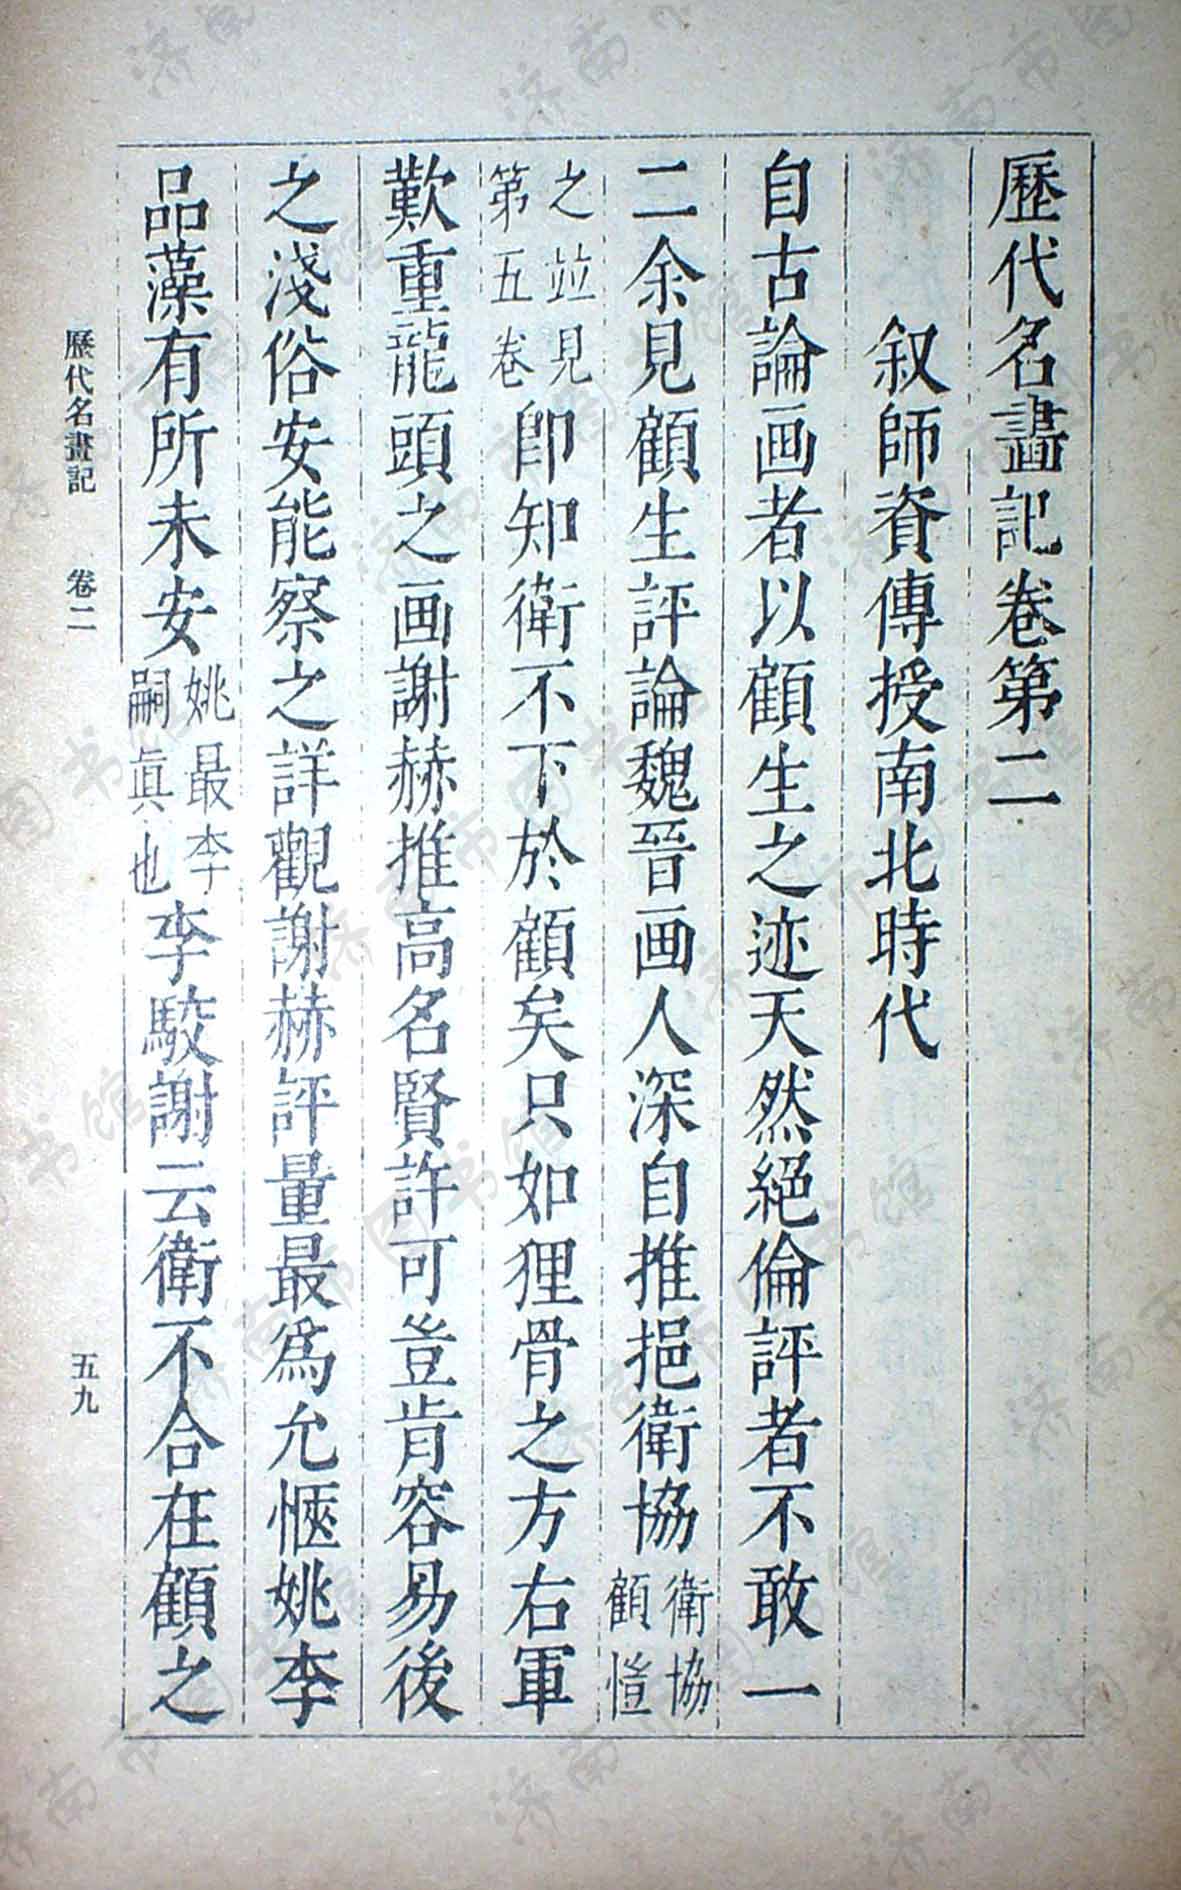 歷代名畫記卷第二
叙師資傳授南北時代
自古論画者以顧生之迹天然絕倫評者不敢一
二余見顧生評論魏晉画人深自推挹衛協衛協顧愷
之並見第五卷卽知衛不下於顧矣只如狸骨之方右軍
歎重龍頭之画謝赫推高名賢許可豈肯容易後
之淺俗安能察之詳觀謝赫評量最爲允愜姚李
品藻有所未安姚最李嗣眞也李駮謝云衛不合在顧之
歷代名畫記 卷二 五九
济南市图书馆